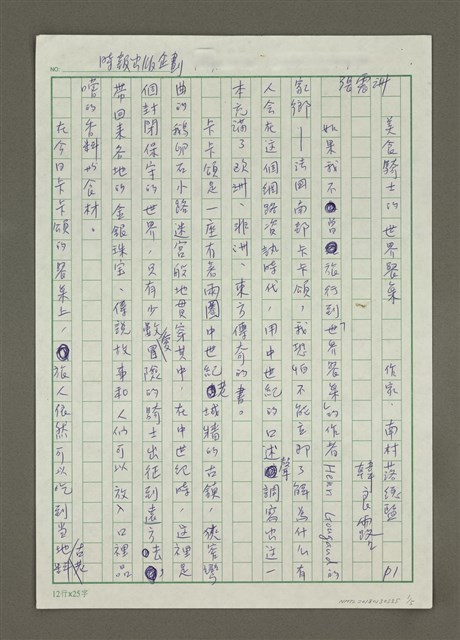 NO.
時報出版企劃
張震洲
美食騎士的世界餐桌
作家、南村落總監
韓良露
P1
如果我不曾旅行到「世界餐桌」的作者 Henri Gougaud 的
家鄉——法國南部卡卡頌，我恐怕不能立即了解為什麼有
人会在這個網路資訊時代，用中世紀的口述聲調寫出這一
本充滿了欧洲、非洲、東方傳奇的書。
卡卡頌是一座有著兩圈中世紀老城牆的古鎮，狹窄彎
曲的鵝卵石小路迷宮般地貫穿其中，在中世紀時，這裡是
個封閉保守的世界，只有少數愛冒險的騎士出征到遠方去，
帶回來各地的金銀珠宝、傳説故事和人們可以放入口裡品
嚐的香料的食材。
在今日卡卡頌的餐桌上，旅人依然可以吃到當地
12行×25字